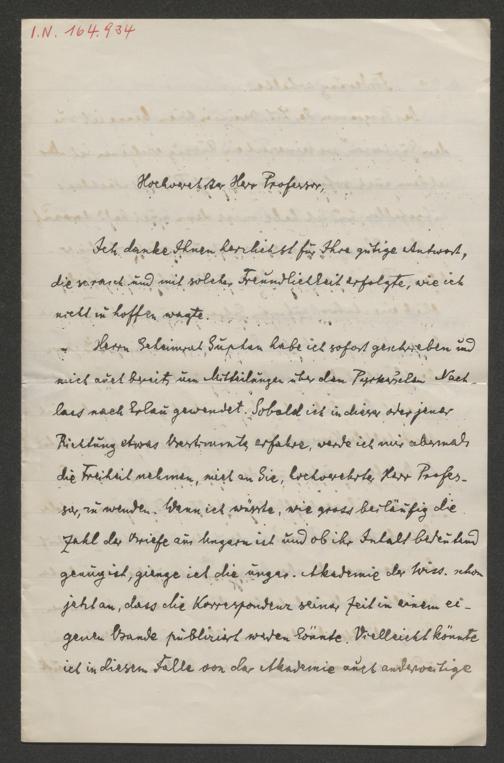 I.N. 164.934
Hochverehrter Herr Professor,
Ich danke Ihnen herzlichst für Ihre gütige Antwort,
die so rasch und mit solcher Freundlichkeit erfolgte, wie ich
nicht zu hoffen wagte.
Herrn Geheimrat Suphan habe ich sofort geschrieben und
mich auch bereits um Mittheilungen über den Pyrker'schen Nach-
lass nach Erlau gewendet. Sobald ich in dieser oder jener
Richtung etwas Bestimmtes erfahre, werde ich mir abermals
die Freiheit nehmen, mich an Sie, hochverehrter Herr Profes-
sor, zu wenden. Wenn ich wüsste, wie gross beiläufig die
Zahl der Briefe aus Ungarn ist und ob ihr Inhalt bedeutend
genug ist, gienge ich die ungar. Akademie der Wiss. schon
jetzt an, dass die Korrespondenz seiner Zeit in einem ei-
genen Bande publiziert werden könnte. Vielleicht könnte
ich in diesem Falle von der Akademie auch anderweitige